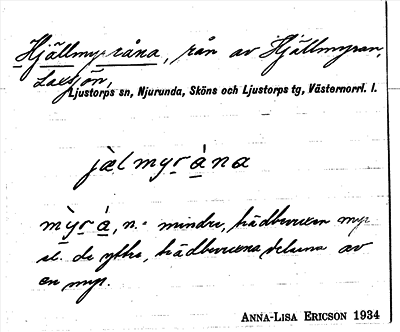 Hjällmyråna, rån av Hjällmyran,
Laxsjön,
Ljustorps sn, Njurunda, Sköns och Ljustorps tg, Västernorrl. l.
jæ̀lmyrå̀na
mỳrå̀, n. = mindre, trädbevuxen myr
el. de yttre, trädbevuxna delarna av
en myr.
ANNA-LISA ERICSON 1934